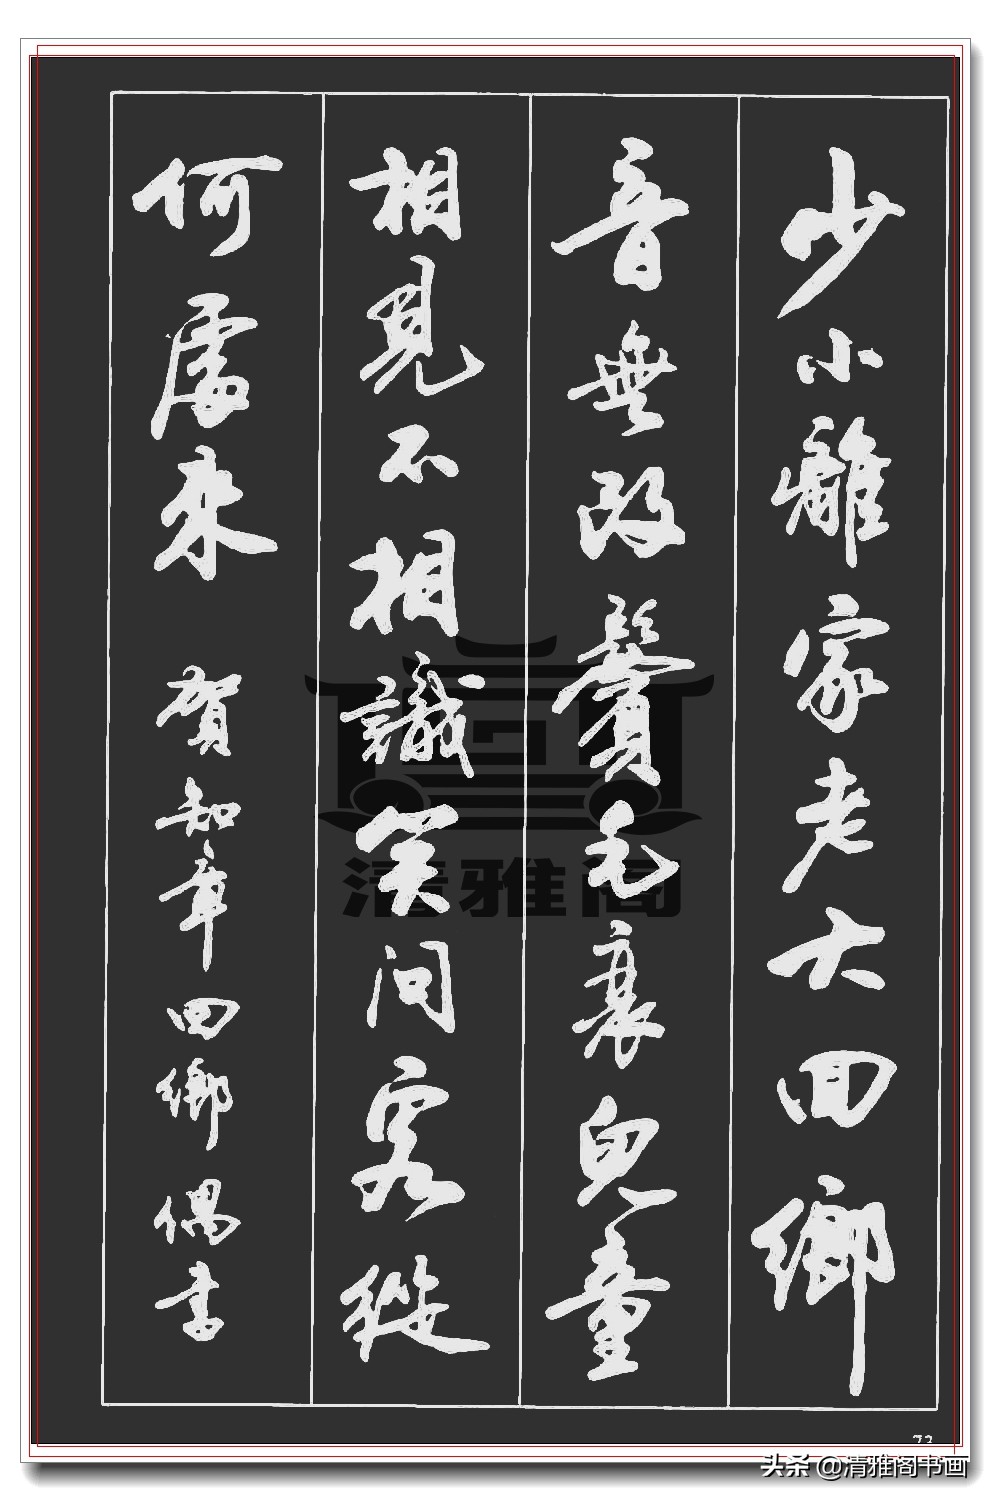 少小離家老大回鄉
音無改鬢毛衰兒童
相見不相識笑問客從
何處來 賀知章回鄉偶書
清雅阁
73
头条 @清雅阁书画